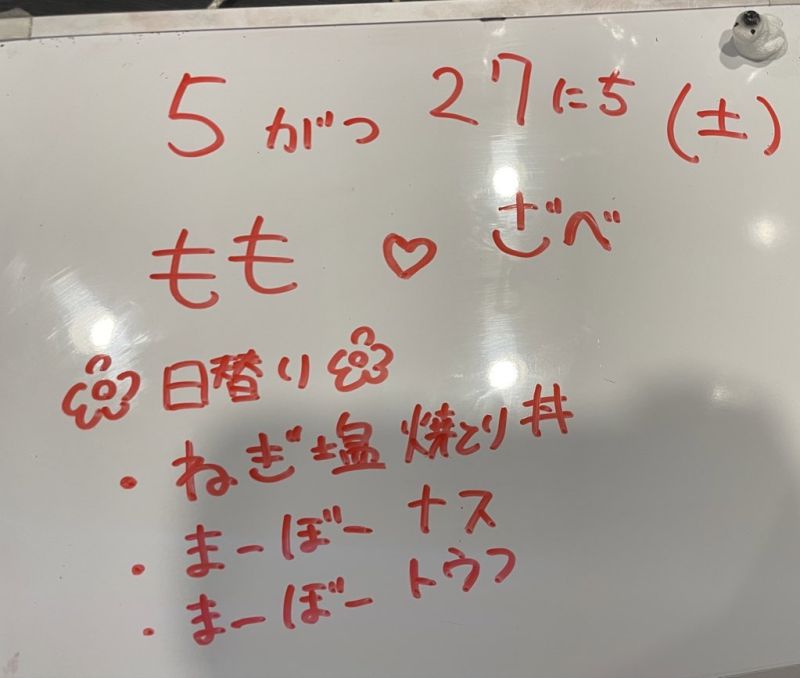 5がつ 27にち (土)
もも ♡ ざべ
日替り
・ねぎ塩 焼とり丼
・まーぼー ナス
・まーぼー トウフ